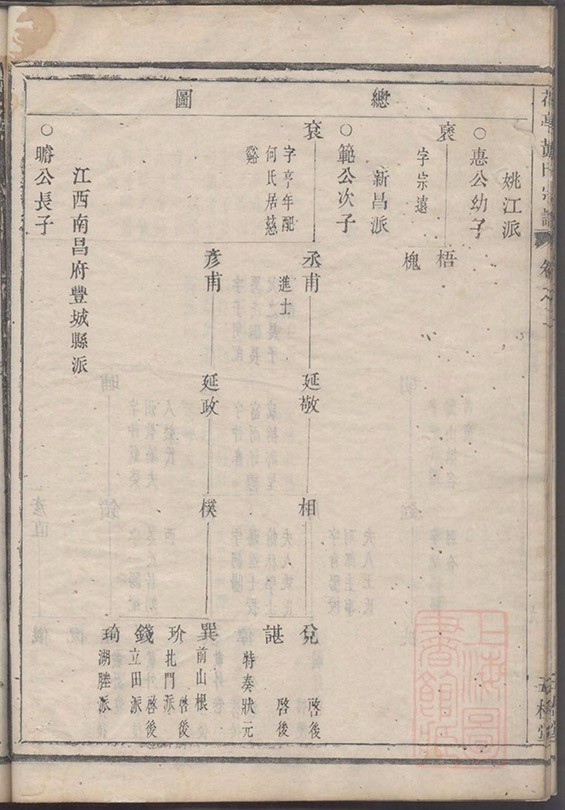 總圖
姚江派
○惠公幼子
裦
字宗遠
梧
槐
新昌派
○範公次子
袞
字亨年配
何氏居慈
谿
丞甫
進士
延敬
相
兌
啓後
諶
特奏狀元
啓後
彥甫
延政
樸
巽
前山根
玠
北門派
啓後
錢
立田派
啓後
琦
湖塍派
江西南昌府豐城縣派
○瞻公長子
卷之二
上海圖書館藏